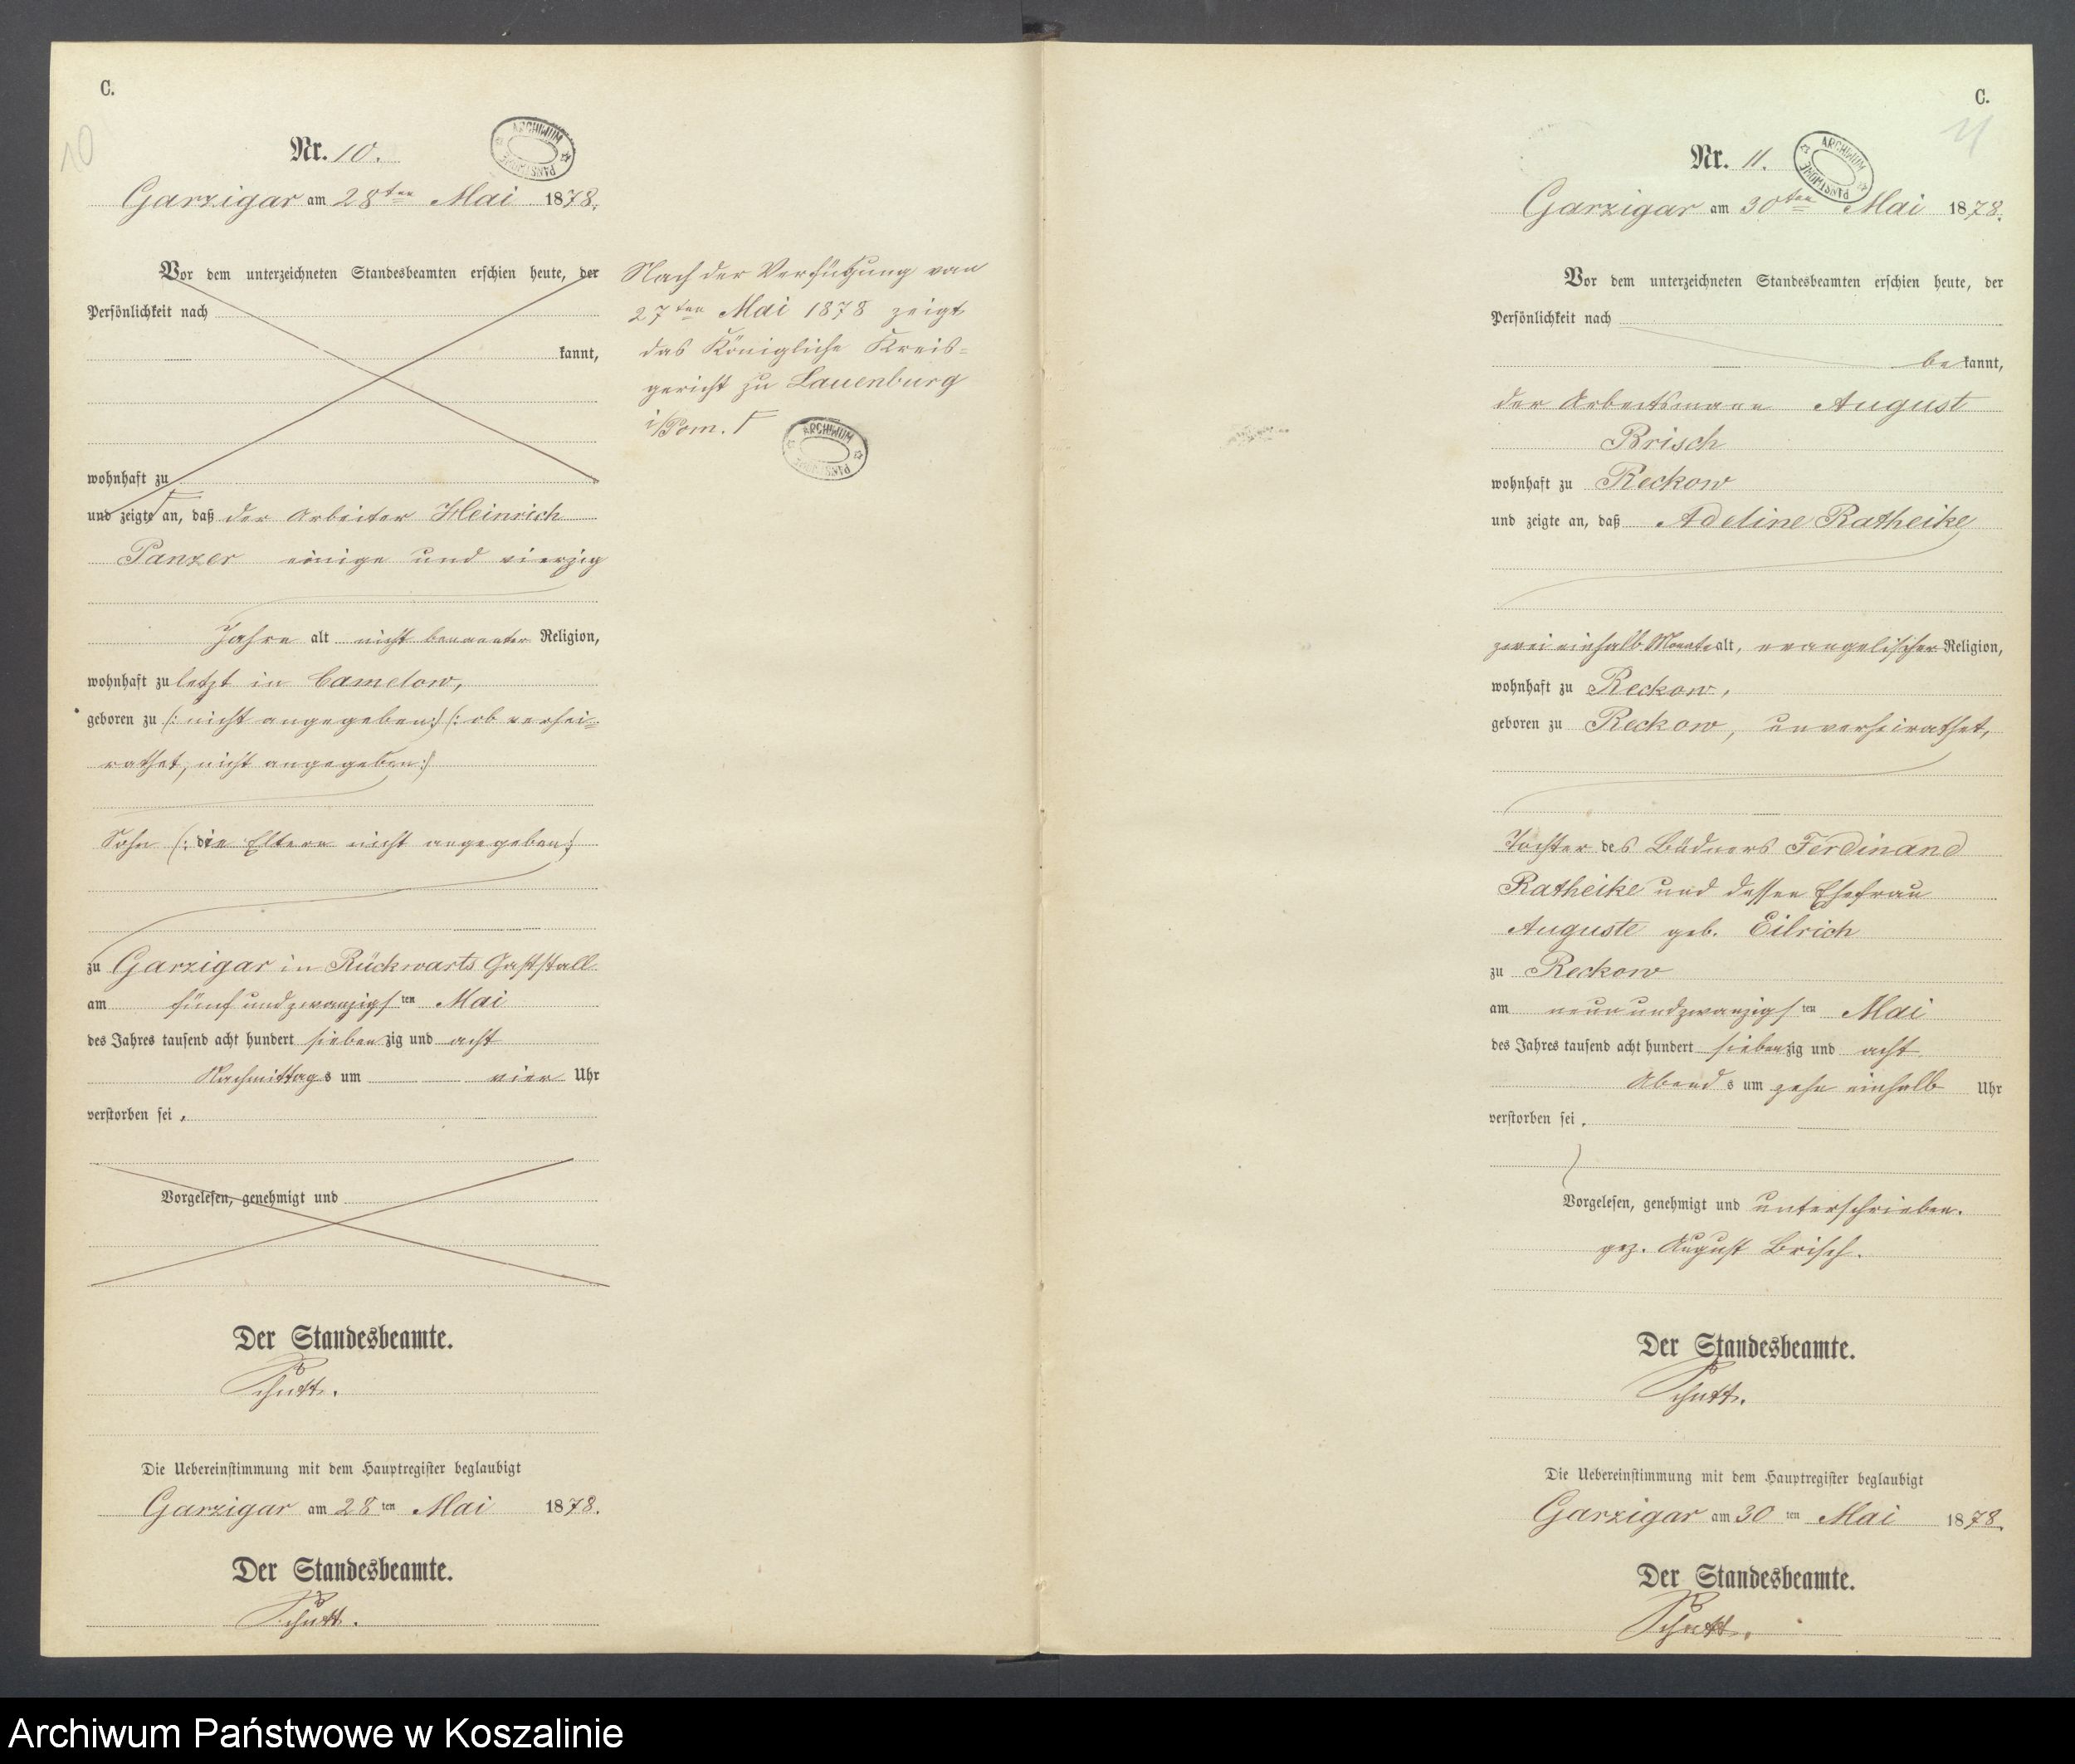 C.
10
Nr. 10.
ARCHIWUM PAŃSTWOWE
Garzigar am 28ten Mai 1878.
Vor dem unterzeichneten Standesbeamten erschien heute, der
Persönlichkeit nach
kannt,
wohnhaft zu
und zeigte an, daß der Arbeiter Heinrich
Panzer einige und vierzig
Jahre alt nicht benannter Religion,
wohnhaft zuletzt in Camelow,
geboren zu (: nicht angegeben:) (: ob verhei=
rathet, nicht angegeben:)
Sohn (: die Eltern nicht angegeben:)
zu Garzigar in Rückwarts Gaststall
am fünf und zwanzigsten Mai
des Jahres tausend acht hundert siebenzig und acht
Nachmittags um vier Uhr
verstorben sei.
Vorgelesen, genehmigt und
Der Standesbeamte.
Schutt.
Die Uebereinstimmung mit dem Hauptregister beglaubigt
Garzigar am 28ten Mai 1878.
Der Standesbeamte.
Schutt.
Nach der Verfügung vom
27ten Mai 1878 zeigt
das Königliche Kreis=
gericht zu Lauenburg
i/Pom. Γ
ARCHIWUM PAŃSTWOWE
C.
11
Nr. 11.
ARCHIWUM PAŃSTWOWE
Garzigar am 30ten Mai 1878.
Vor dem unterzeichneten Standesbeamten erschien heute, der
Persönlichkeit nach
bekannt,
der Arbeitsmann August
Brisch
wohnhaft zu Reckow
und zeigte an, daß Adeline Ratheike
zwei einhalb Monate alt, evangelischer Religion,
wohnhaft zu Reckow,
geboren zu Reckow, unverheirathet,
Tochter des Büdners Ferdinand
Ratheike und dessen Ehefrau
Auguste geb. Eilrich
zu Reckow
am neun und zwanzigsten Mai
des Jahres tausend acht hundert siebenzig und acht
Abends um zehn einhalb Uhr
verstorben sei.
Vorgelesen, genehmigt und unterschrieben.
gez. August Brisch.
Der Standesbeamte.
Schutt.
Die Uebereinstimmung mit dem Hauptregister beglaubigt
Garzigar am 30ten Mai 1878.
Der Standesbeamte.
Schutt.
Archiwum Państwowe w Koszalinie